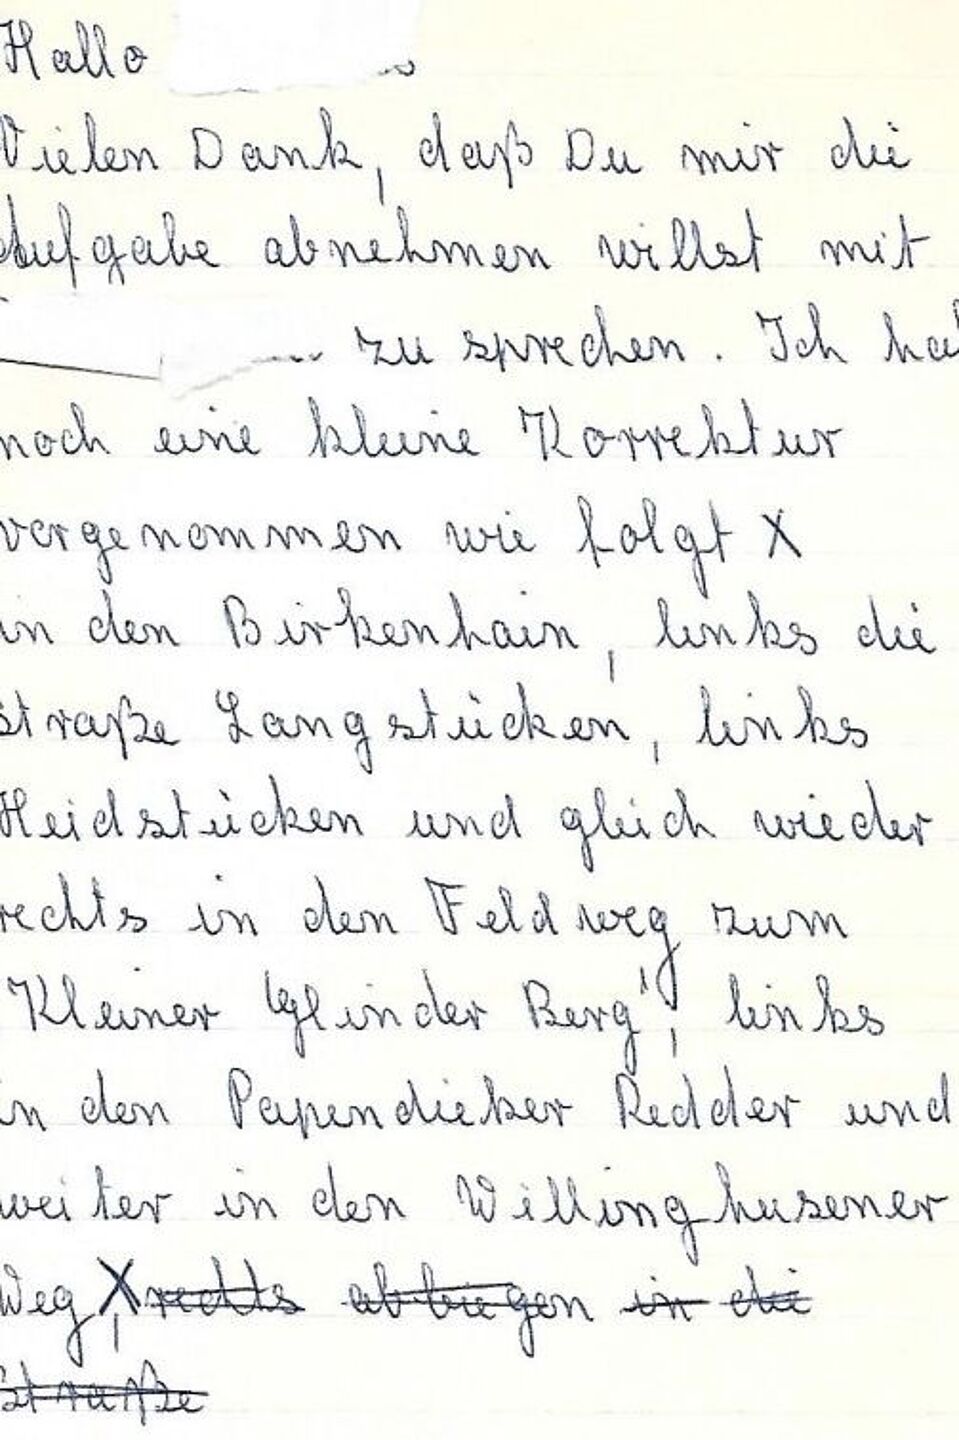 Hallo
Vielen Dank, daß Du mir die
Aufgabe abnehmen willst mit
zu sprechen. Ich hab
noch eine kleine Korrektur
vorgenommen wie folgt X
in den Birkenhain, links die
straße Langstücken, links
Heidstücken und gleich wieder
rechts in den Feldweg zum
Kleiner Glinder Berg", links
in den Papendieker Redder und
weiter in den Willinghusener
Weg X, rechts abbiegen in die
straße